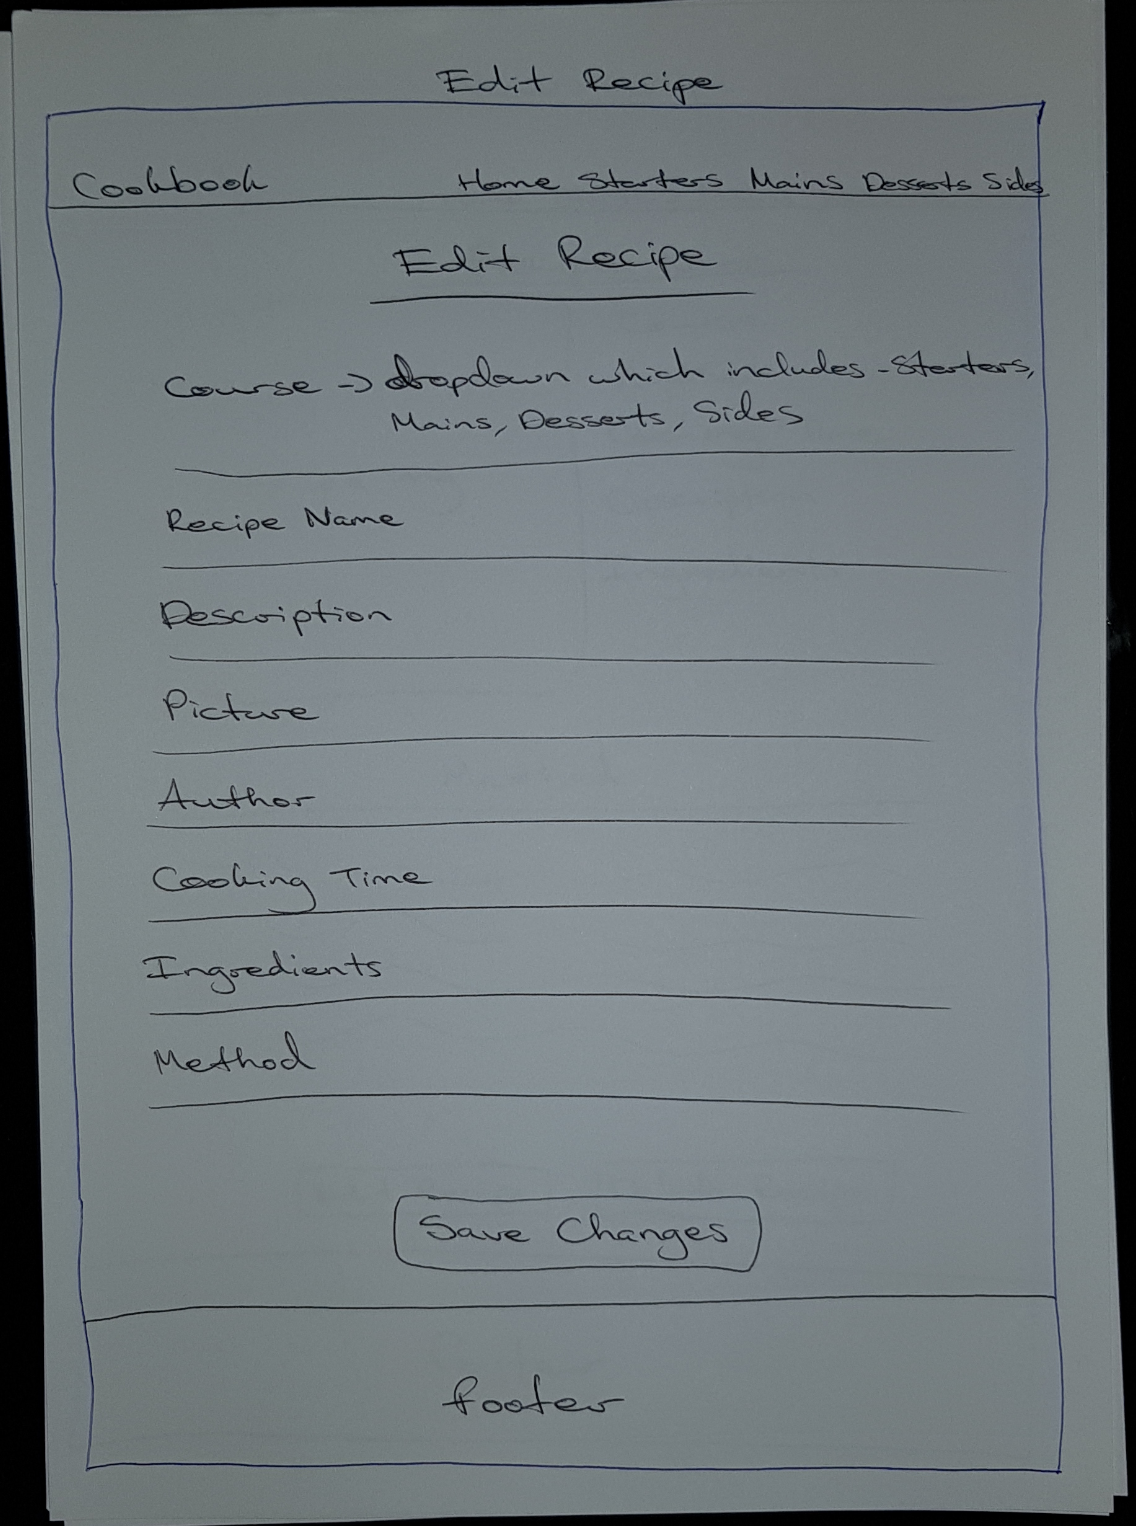 Edit Recipe
Cookbook Home Starters Mains Desserts Sides
Edit Recipe
Course -> dropdown which includes - Starters,
Mains, Desserts, Sides
Recipe Name
Description
Picture
Author
Cooking Time
Ingredients
Method
Save Changes
footer